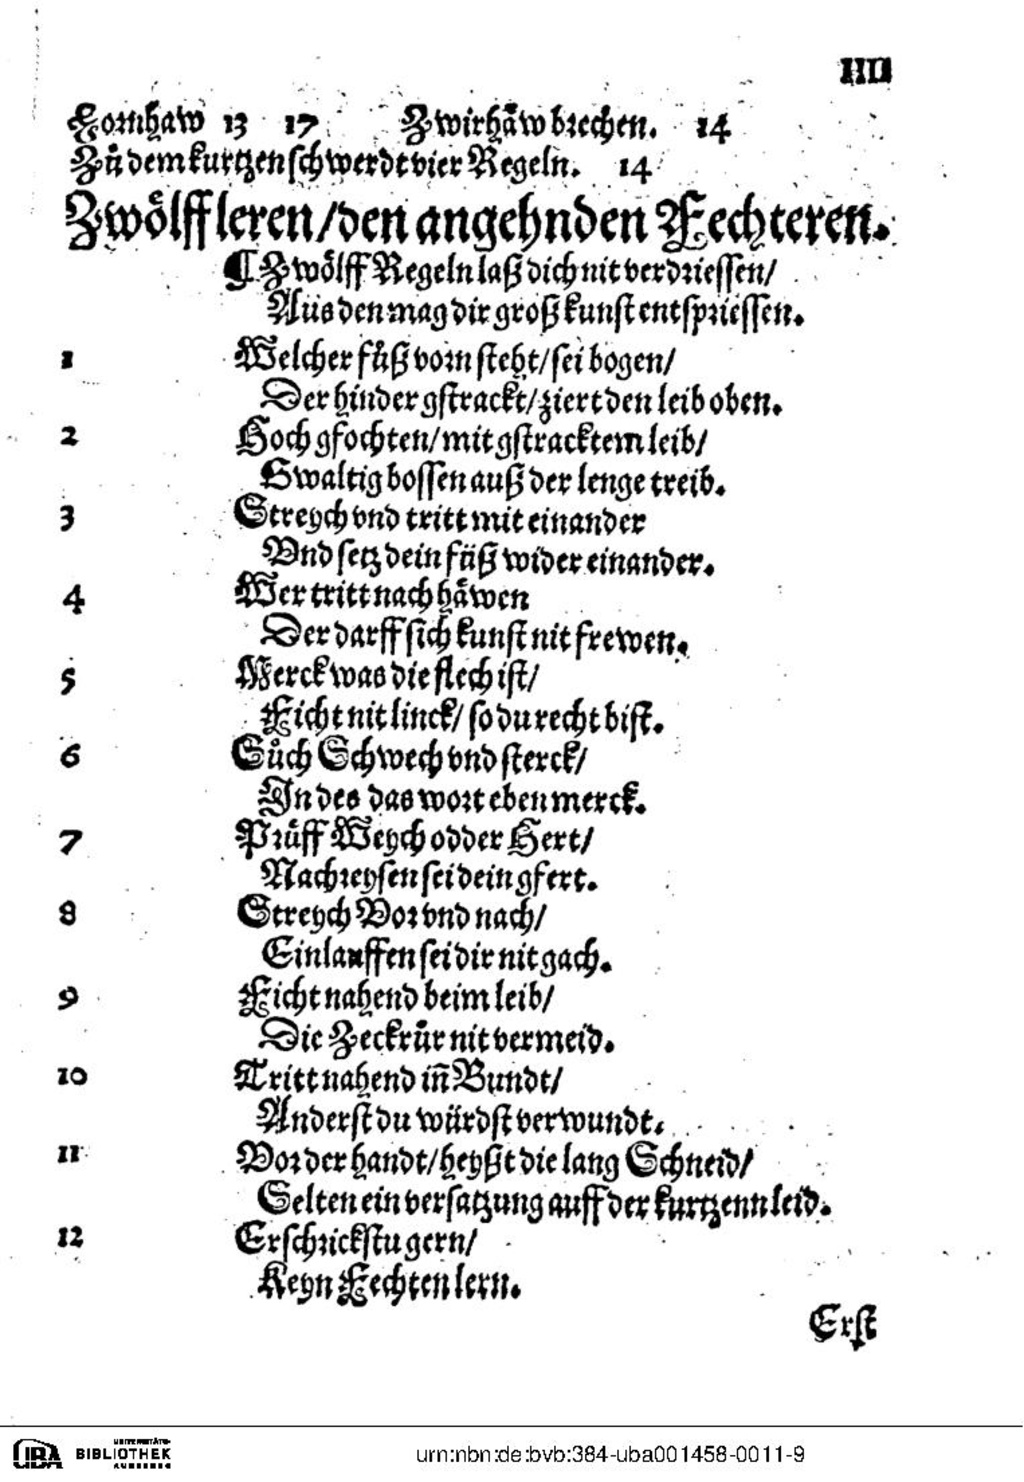 IIII
Zornhaw 13 17 Zwirhäw brechen. 14
Zů dem kurtzen schwerdt vier Regeln. 14
Zwölff leren/den angehnden Fechteren.
¶ Zwölff Regeln laß dich nit verdriessen/
Aüs den mag dir groß kunst entspriessen.
1 Welcher fůß vorn steht/sei bogen/
Der hinder gstrackt/ziert den leib oben.
2 Hoch gfochten/mit gstracktem leib/
Gwaltig bossen auß der lenge treib.
3 Streych vnd tritt mit einander
Vnd setz dein füß wider einander.
4 Wer tritt nach häwen
Der darff sich kunst nit frewen.
5 Merck was die flech ist/
Ficht nit linck/ so du recht bist.
6 Sůch Schwech vnd sterck/
In des das wort eben merck.
7 Prüff Weych odder Hert/
Nachreysen sei dein gfert.
8 Streych Vor vnd nach/
Einlauffen sei dir nit gach.
9 Ficht nahend beim leib/
Die Zeckrůr nit vermeid.
10 Tritt nahend in̄ Bundt/
Anderst du würdst verwundt.
11 Vor der handt/heyßt die lang Schneid/
Selten ein versatzung auff der kurtzenn leid.
12 Erschrickstu gern/
Keyn Fechten lern.
Erst
UBA UNIVERSITÄTS-
BIBLIOTHEK
AUGSBURG
urn:nbn:de:bvb:384-uba001458-0011-9